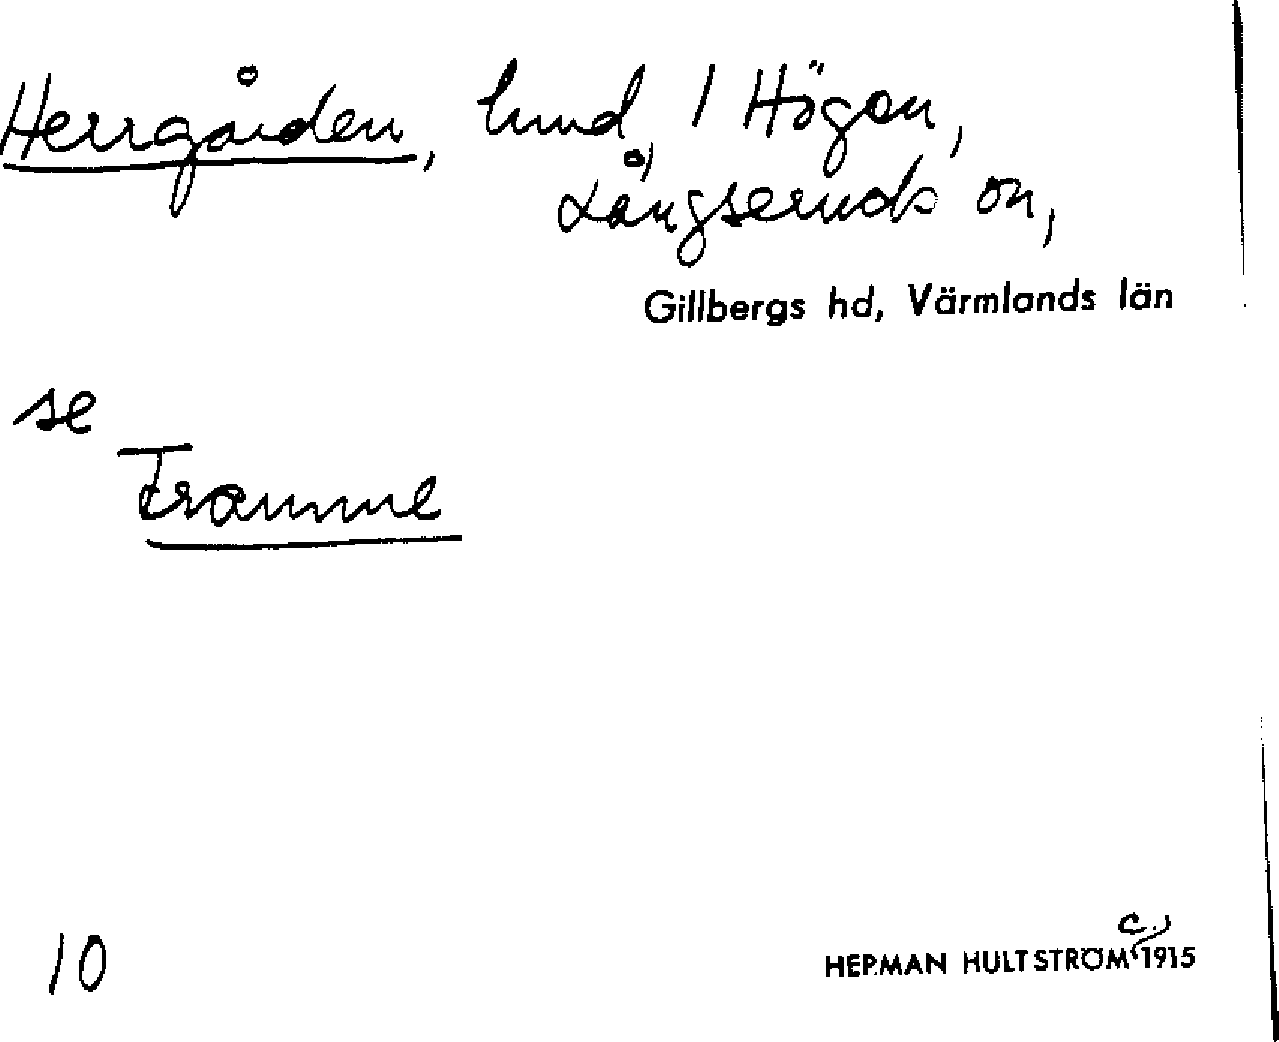 Herrgården, hmd, 1 Högen,
Långseruds sn,
Gillbergs hd, Värmlands län
se
Framme
10
c.
HERMAN HULTSTRÖM 1915